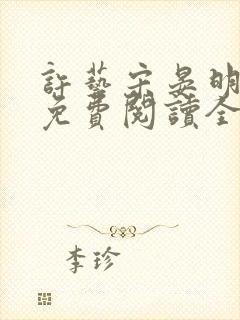 許藝宋晏明
免費閱讀全
李珍